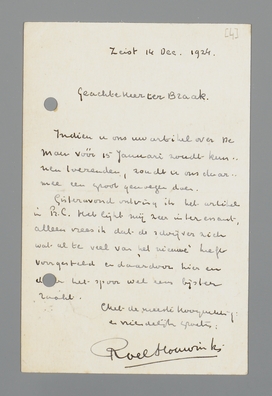 [4]
Zeist 14 Dec. 1924.
Geachte Heer ter Braak.
Indien u ons uw artikel over De
Man vóór 15 Januari zoudt kun-
nen toezenden, zoudt u ons daar-
mee een groot genoegen doen.
Gisteravond ontving ik het artikel
in P.C. Het lijkt mij zeer interessant,
alleen vrees ik dat de schrijver zich
wat al te veel van het "nieuwe" heeft
voorgesteld en daardoor hier en
daar het spoor wel eens bijster
raakt.
Met de meeste hoogachting
en vriendelijke groeten,
Roel Houwink